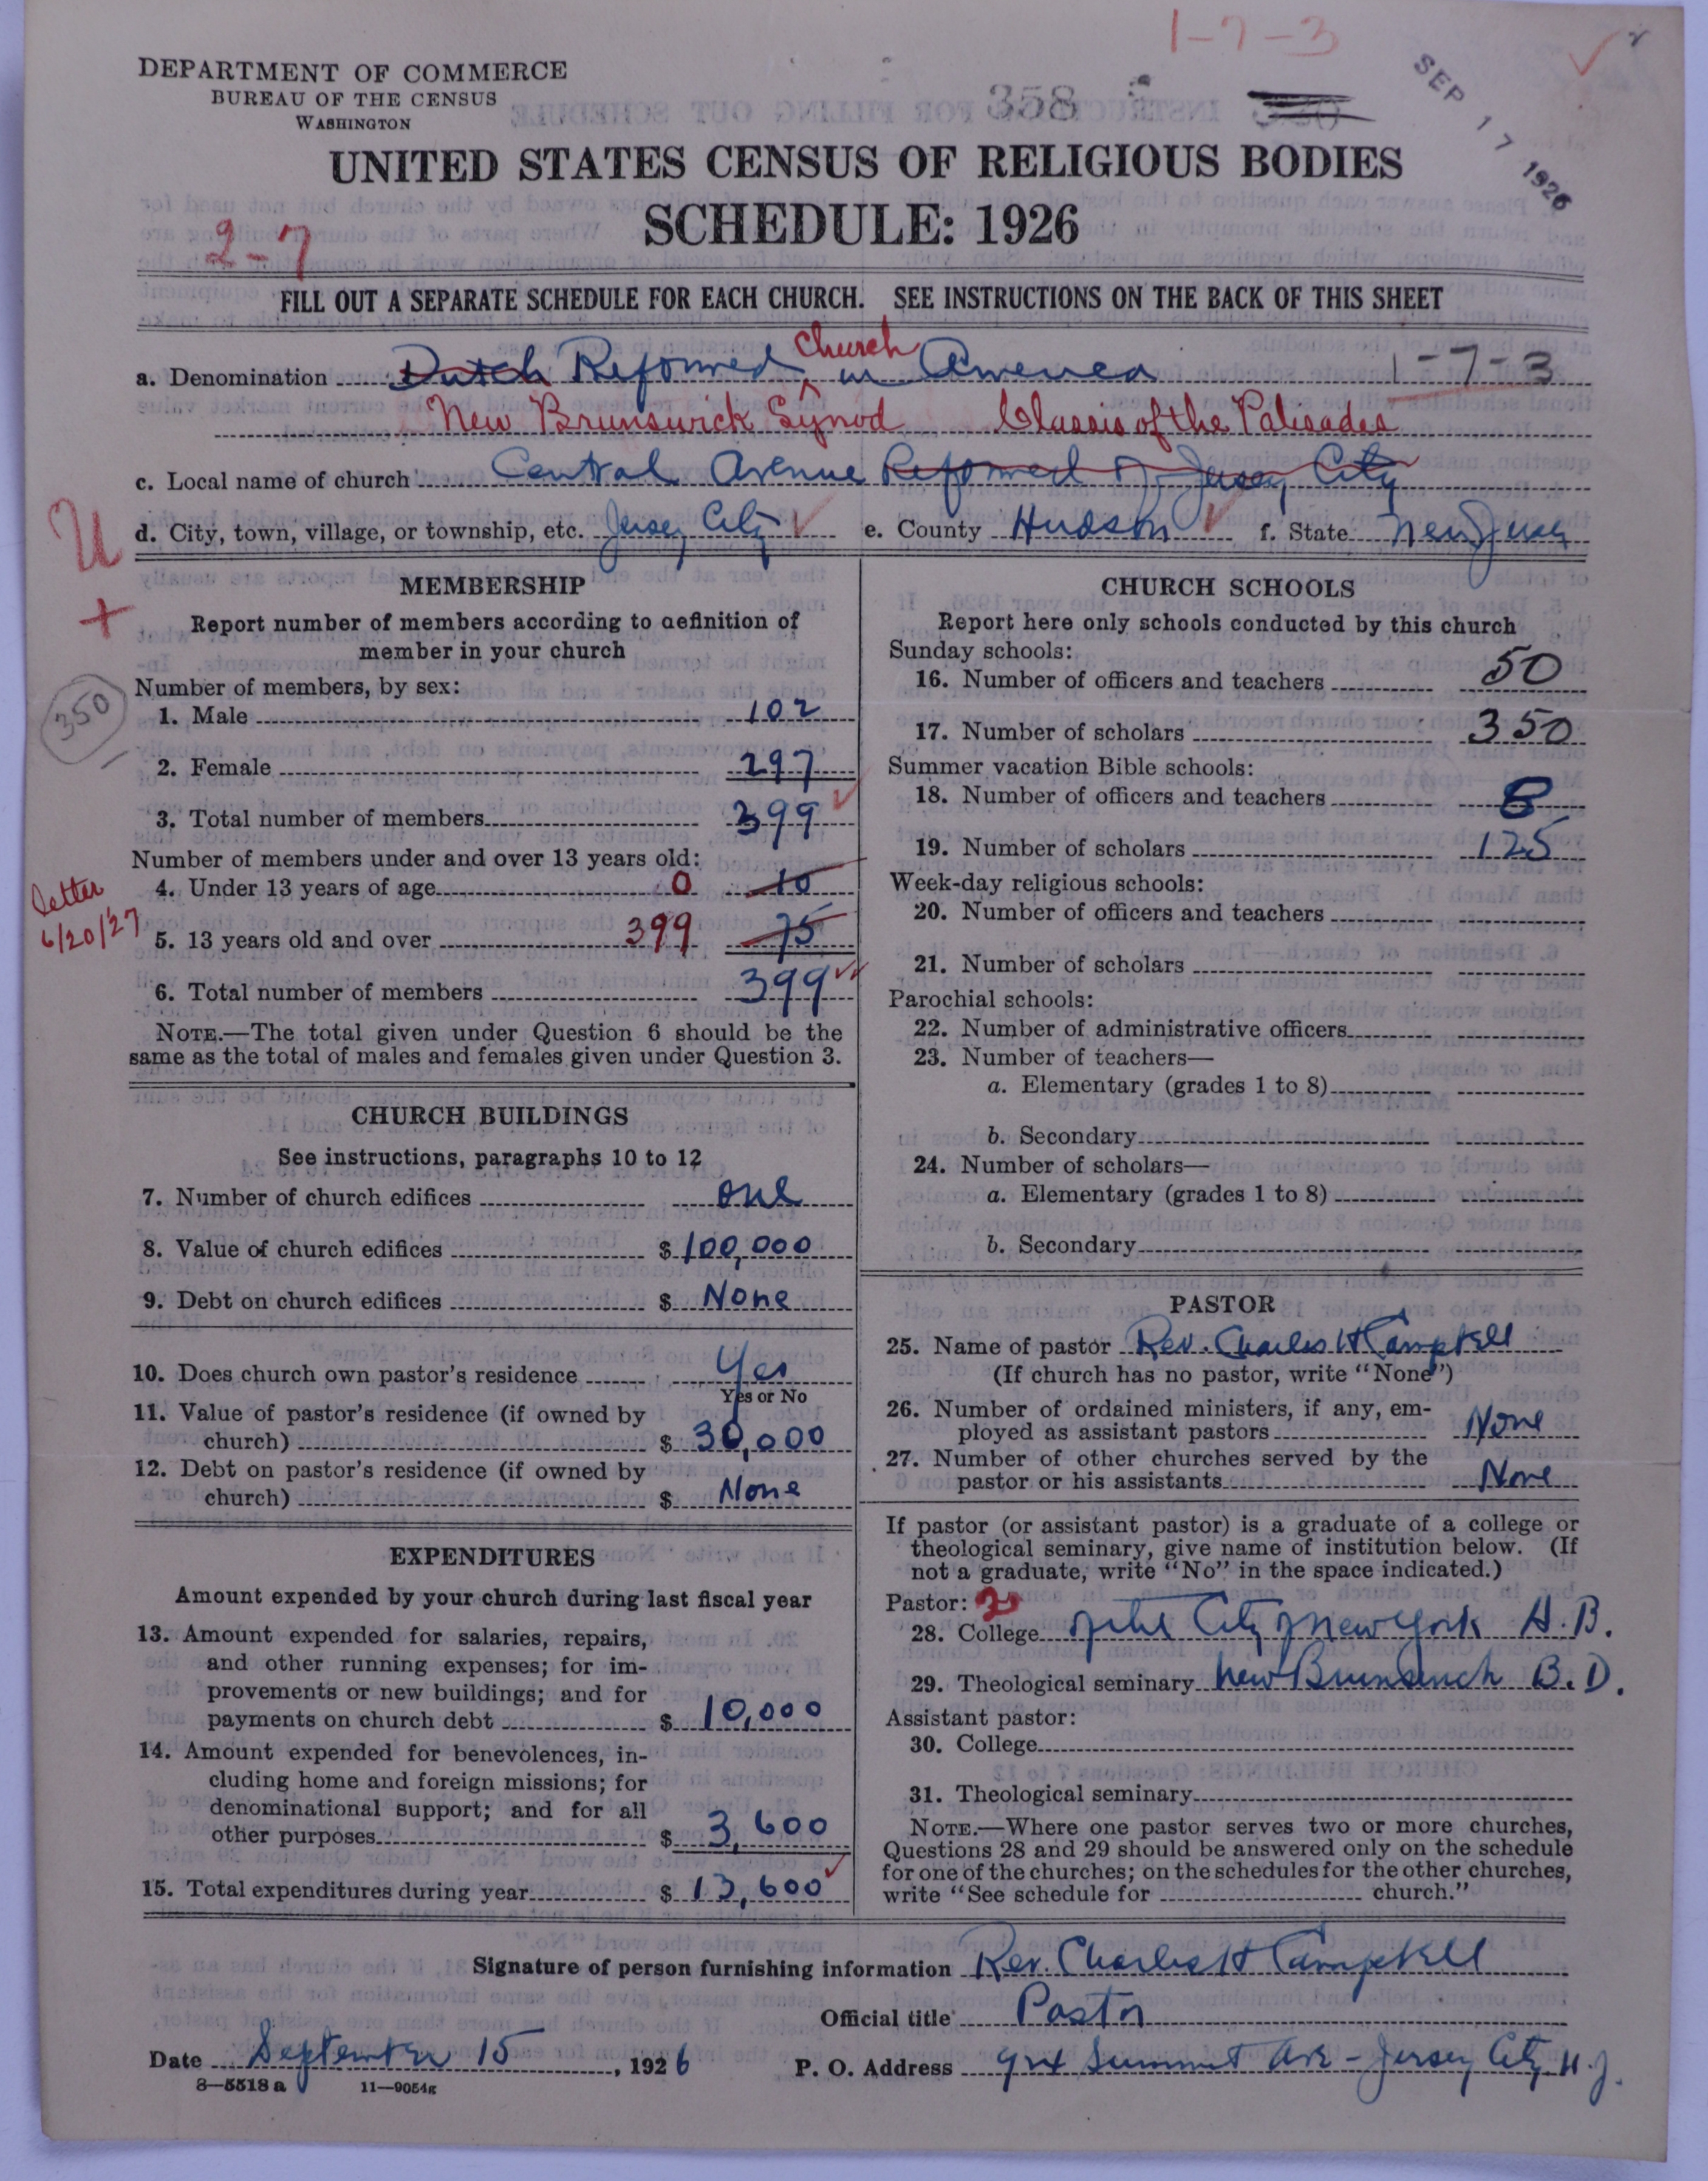 1-7-3
DEPARTMENT OF COMMERCE
BUREAU OF THE CENSUS
WASHINGTON
358
SEP 17 1926
UNITED STATES CENSUS OF RELIGIOUS BODIES
SCHEDULE: 1926
2-7
FILL OUT A SEPARATE SCHEDULE FOR EACH CHURCH. SEE INSTRUCTIONS ON THE BACK OF THIS SHEET
a. Denomination Dutch Reformed Church in America 1-7-3
New Brunswick Synod Classis of the Palisades
c. Local name of church Central Avenue Reformed of Jersey City
d. City, town, village, or township, etc. Jersey City e. County Hudson f. State New Jersey
U
+
MEMBERSHIP
Report number of members according to definition of
member in your church
Number of members, by sex:
350
1. Male 102
2. Female 297
3. Total number of members 399
Number of members under and over 13 years old:
4. Under 13 years of age 0 10
letter
6/20/27
5. 13 years old and over 399 75
6. Total number of members 399
NOTE.—The total given under Question 6 should be the
same as the total of males and females given under Question 3.
CHURCH BUILDINGS
See instructions, paragraphs 10 to 12
7. Number of church edifices one
8. Value of church edifices $ 100,000
9. Debt on church edifices $ None
10. Does church own pastor's residence Yes
Yes or No
11. Value of pastor's residence (if owned by
church) $ 30,000
12. Debt on pastor's residence (if owned by
church) $ None
EXPENDITURES
Amount expended by your church during last fiscal year
13. Amount expended for salaries, repairs,
and other running expenses; for im-
provements or new buildings; and for
payments on church debt $ 10,000
14. Amount expended for benevolences, in-
cluding home and foreign missions; for
denominational support; and for all
other purposes $ 3,600
15. Total expenditures during year $ 13,600
CHURCH SCHOOLS
Report here only schools conducted by this church
Sunday schools:
16. Number of officers and teachers 50
17. Number of scholars 350
Summer vacation Bible schools:
18. Number of officers and teachers 8
19. Number of scholars 125
Week-day religious schools:
20. Number of officers and teachers
21. Number of scholars
Parochial schools:
22. Number of administrative officers
23. Number of teachers—
a. Elementary (grades 1 to 8)
b. Secondary
24. Number of scholars—
a. Elementary (grades 1 to 8)
b. Secondary
PASTOR
25. Name of pastor Rev. Charles H Campbell
(If church has no pastor, write "None")
26. Number of ordained ministers, if any, em-
ployed as assistant pastors None
27. Number of other churches served by the
pastor or his assistants None
If pastor (or assistant pastor) is a graduate of a college or
theological seminary, give name of institution below. (If
not a graduate, write "No" in the space indicated.)
Pastor: 2
28. College of the City of New York A.B.
29. Theological seminary New Brunswick B.D.
Assistant pastor:
30. College
31. Theological seminary
NOTE.—Where one pastor serves two or more churches,
Questions 28 and 29 should be answered only on the schedule
for one of the churches; on the schedules for the other churches,
write "See schedule for church."
Signature of person furnishing information Rev. Charles H Campbell
Official title Pastor
Date September 15, 1926 P. O. Address Summit Ave - Jersey City N.J.
8—5518 a 11—9054g